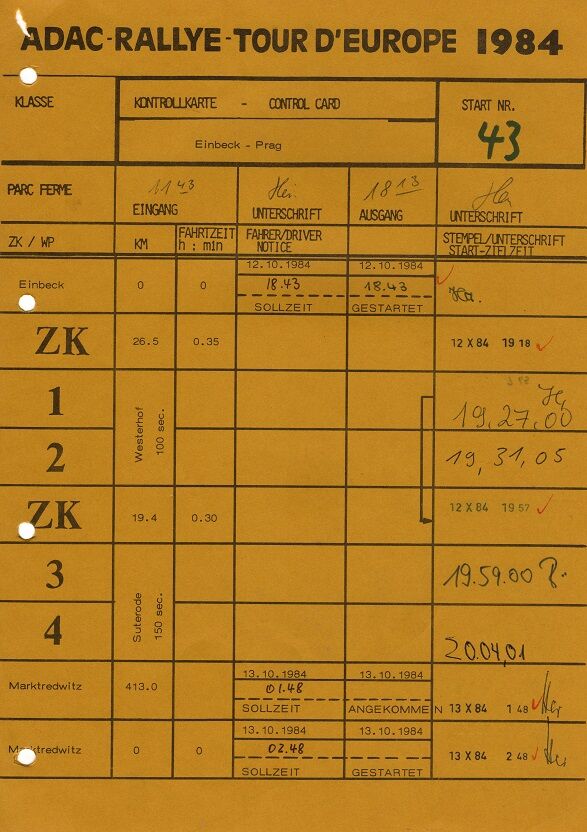 ADAC-RALLYE-TOUR D'EUROPE 1984
KLASSE
KONTROLLKARTE - CONTROL CARD
START NR.
Einbeck - Prag
43
PARC FERME
11 43
EINGANG
UNTERSCHRIFT
18 13
AUSGANG
UNTERSCHRIFT
ZK / WP
KM
FAHRTZEIT
h : min
FAHRER/DRIVER
NOTICE
STEMPEL/UNTERSCHRIFT
START-ZIELZEIT
Einbeck
0
0
12.10.1984
18.43
SOLLZEIT
12.10.1984
18.43
GESTARTET
ZK
26.5
0.35
12 X 84 19 18
1
Westerhof
100 sec.
19,27,00
2
19,31,05
ZK
19.4
0.30
12 X 84 19 57
3
Suterode
150 sec.
19.59.00
4
20.04,01
Marktredwitz
413.0
13.10.1984
01.48
SOLLZEIT
13.10.1984
ANGEKOMMEN
13 X 84 1 48
Marktredwitz
0
0
13.10.1984
02.48
SOLLZEIT
13.10.1984
GESTARTET
13 X 84 2 48